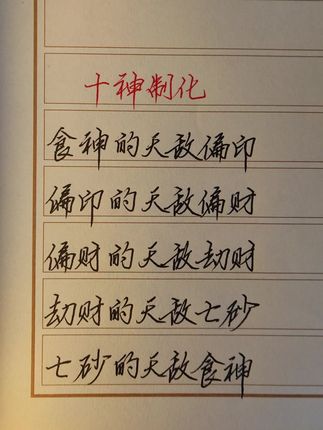 十神制化
食神的天敌偏印
偏印的天敌偏财
偏财的天敌劫财
劫财的天敌七砂
七砂的天敌食神